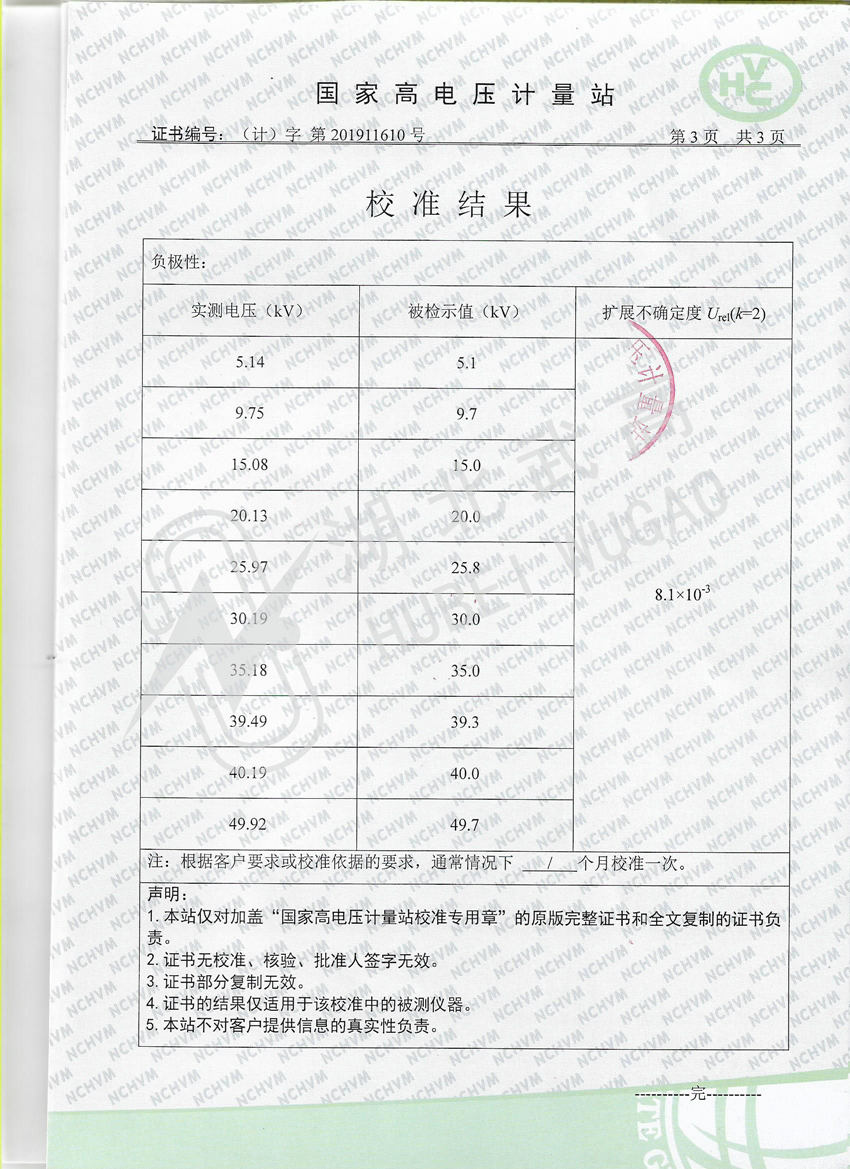 国家高电压计量站
HVC
证书编号：（计）字 第 201911610 号
第 3 页 共 3 页
校准结果
负极性：
实测电压（kV） 被检示值（kV） 扩展不确定度 Urel(k=2)
5.14 5.1
9.75 9.7
15.08 15.0
20.13 20.0
25.97 25.8
30.19 30.0
35.18 35.0
39.49 39.3
40.19 40.0
49.92 49.7
8.1×10-3
压计量
湖北武高
HUBEI WUGAO
注：根据客户要求或校准依据的要求，通常情况下 / 个月校准一次。
声明：
1. 本站仅对加盖“国家高电压计量站校准专用章”的原版完整证书和全文复制的证书负
责。
2. 证书无校准、核验、批准人签字无效。
3. 证书部分复制无效。
4. 证书的结果仅适用于该校准中的被测仪器。
5. 本站不对客户提供信息的真实性负责。
----------完----------
NCHVM